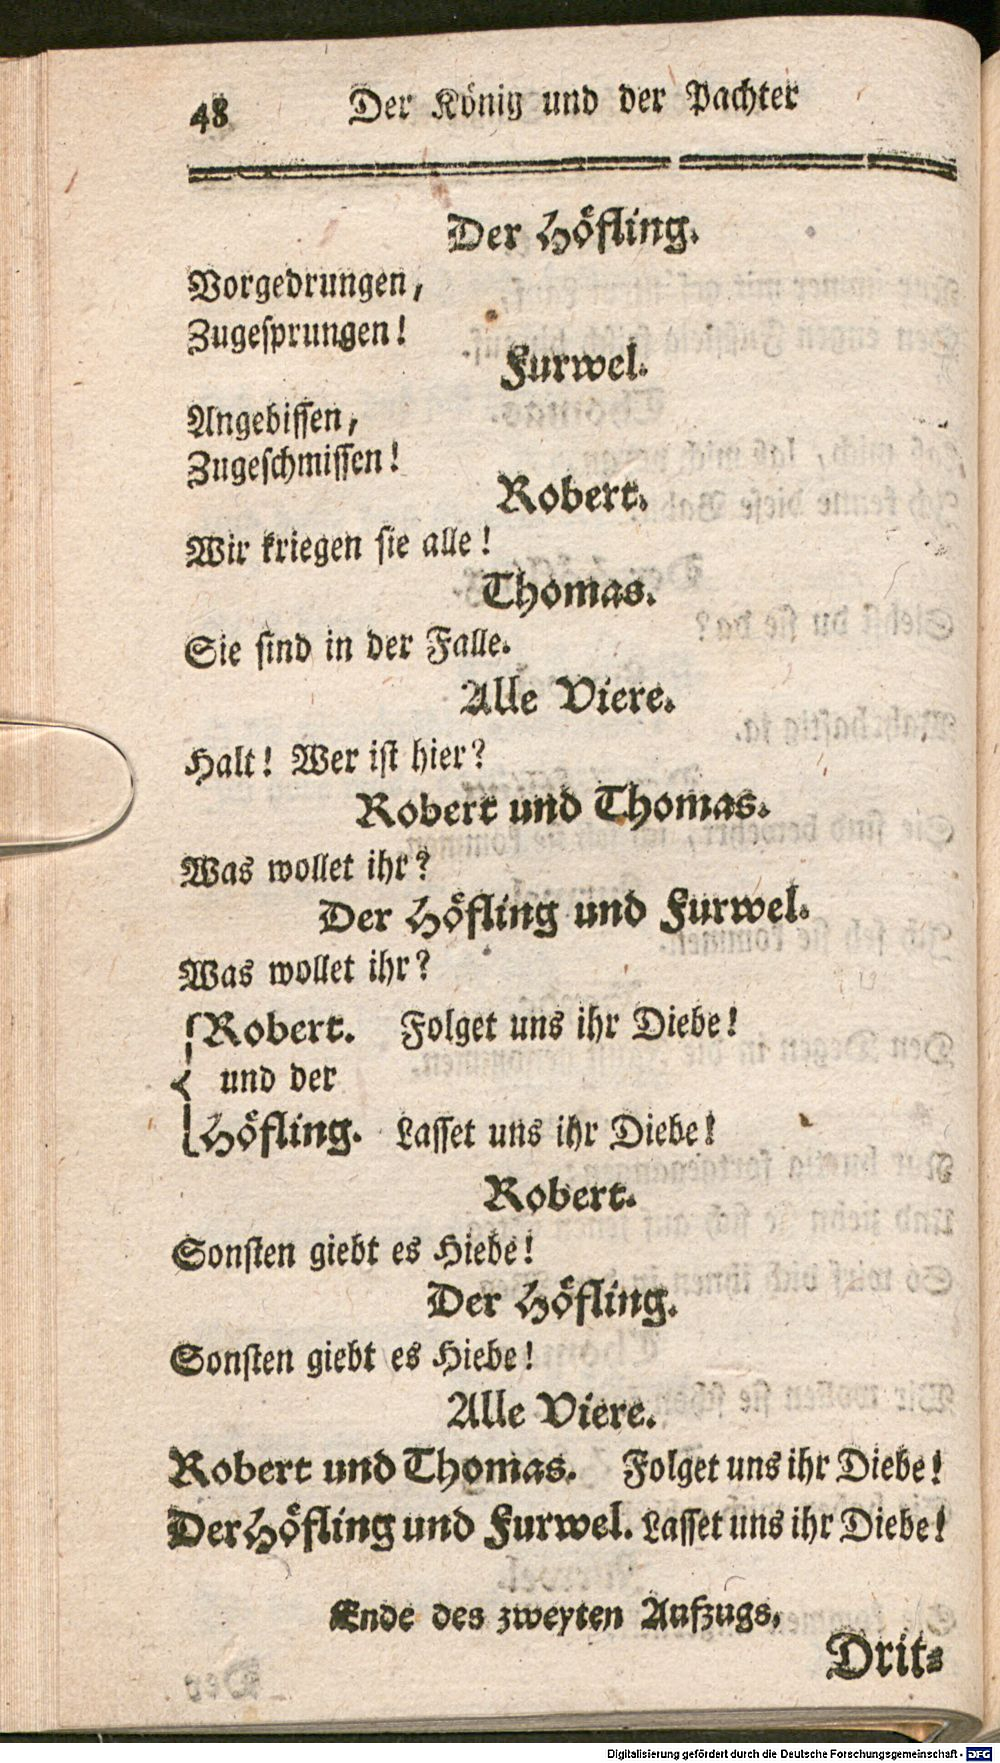 48 Der König und der Pachter
Der Höfling.
Vorgedrungen,
Zugesprungen!
Furwel.
Angebissen,
Zugeschmissen!
Robert.
Wir kriegen sie alle!
Thomas.
Sie sind in der Falle.
Alle Viere.
Halt! Wer ist hier?
Robert und Thomas.
Was wollet ihr?
Der Höfling und Furwel.
Was wollet ihr?
Robert. Folget uns ihr Diebe!
und der
Höfling. Lasset uns ihr Diebe!
Robert.
Sonsten giebt es Hiebe!
Der Höfling.
Sonsten giebt es Hiebe!
Alle Viere.
Robert und Thomas. Folget uns ihr Diebe!
Der Höfling und Furwel. Lasset uns ihr Diebe!
Ende des zweyten Aufzugs.
Drit-
Digitalisierung gefördert durch die Deutsche Forschungsgemeinschaft - DFG